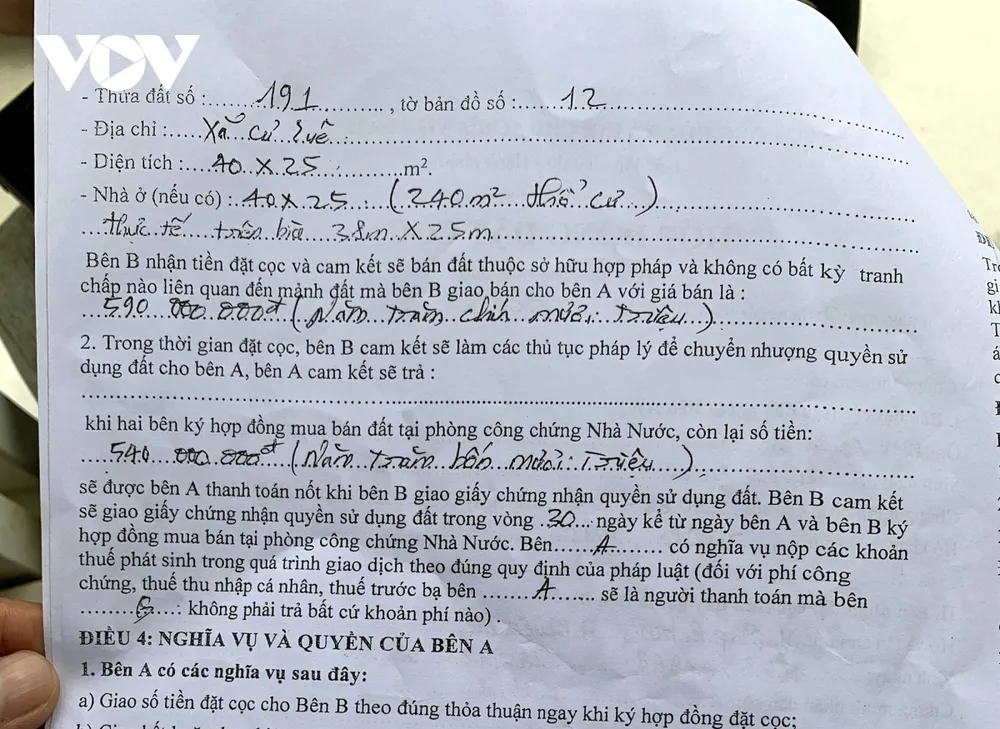 VOV
- Thửa đất số :......191......, tờ bản đồ số :......12......
- Địa chỉ :.....Xã Cư Suê......
- Diện tích :....40 X 25......m².
- Nhà ở (nếu có) :..40 X 25.....(240 m² thổ cư)......
...thực tế trên bìa 38m X 25m......
Bên B nhận tiền đặt cọc và cam kết sẽ bán đất thuộc sở hữu hợp pháp và không có bất kỳ tranh
chấp nào liên quan đến mảnh đất mà bên B giao bán cho bên A với giá bán là :
...590 000 000đ (Năm trăm chín mươi triệu)......
2. Trong thời gian đặt cọc, bên B cam kết sẽ làm các thủ tục pháp lý để chuyển nhượng quyền sử
dụng đất cho bên A, bên A cam kết sẽ trả :
khi hai bên ký hợp đồng mua bán đất tại phòng công chứng Nhà Nước, còn lại số tiền:
...540 000 000đ (Năm trăm bốn mươi Triệu)......
sẽ được bên A thanh toán nốt khi bên B giao giấy chứng nhận quyền sử dụng đất. Bên B cam kết
sẽ giao giấy chứng nhận quyền sử dụng đất trong vòng .30... ngày kể từ ngày bên A và bên B ký
hợp đồng mua bán tại phòng công chứng Nhà Nước. Bên......A........ có nghĩa vụ nộp các khoản
thuế phát sinh trong quá trình giao dịch theo đúng quy định của pháp luật (đối với phí công
chứng, thuế thu nhập cá nhân, thuế trước bạ bên ........A....... sẽ là người thanh toán mà bên
........B....: không phải trả bất cứ khoản phí nào) .
ĐIỀU 4: NGHĨA VỤ VÀ QUYỀN CỦA BÊN A
1. Bên A có các nghĩa vụ sau đây:
a) Giao số tiền đặt cọc cho Bên B theo đúng thỏa thuận ngay khi ký hợp đồng đặt cọc;